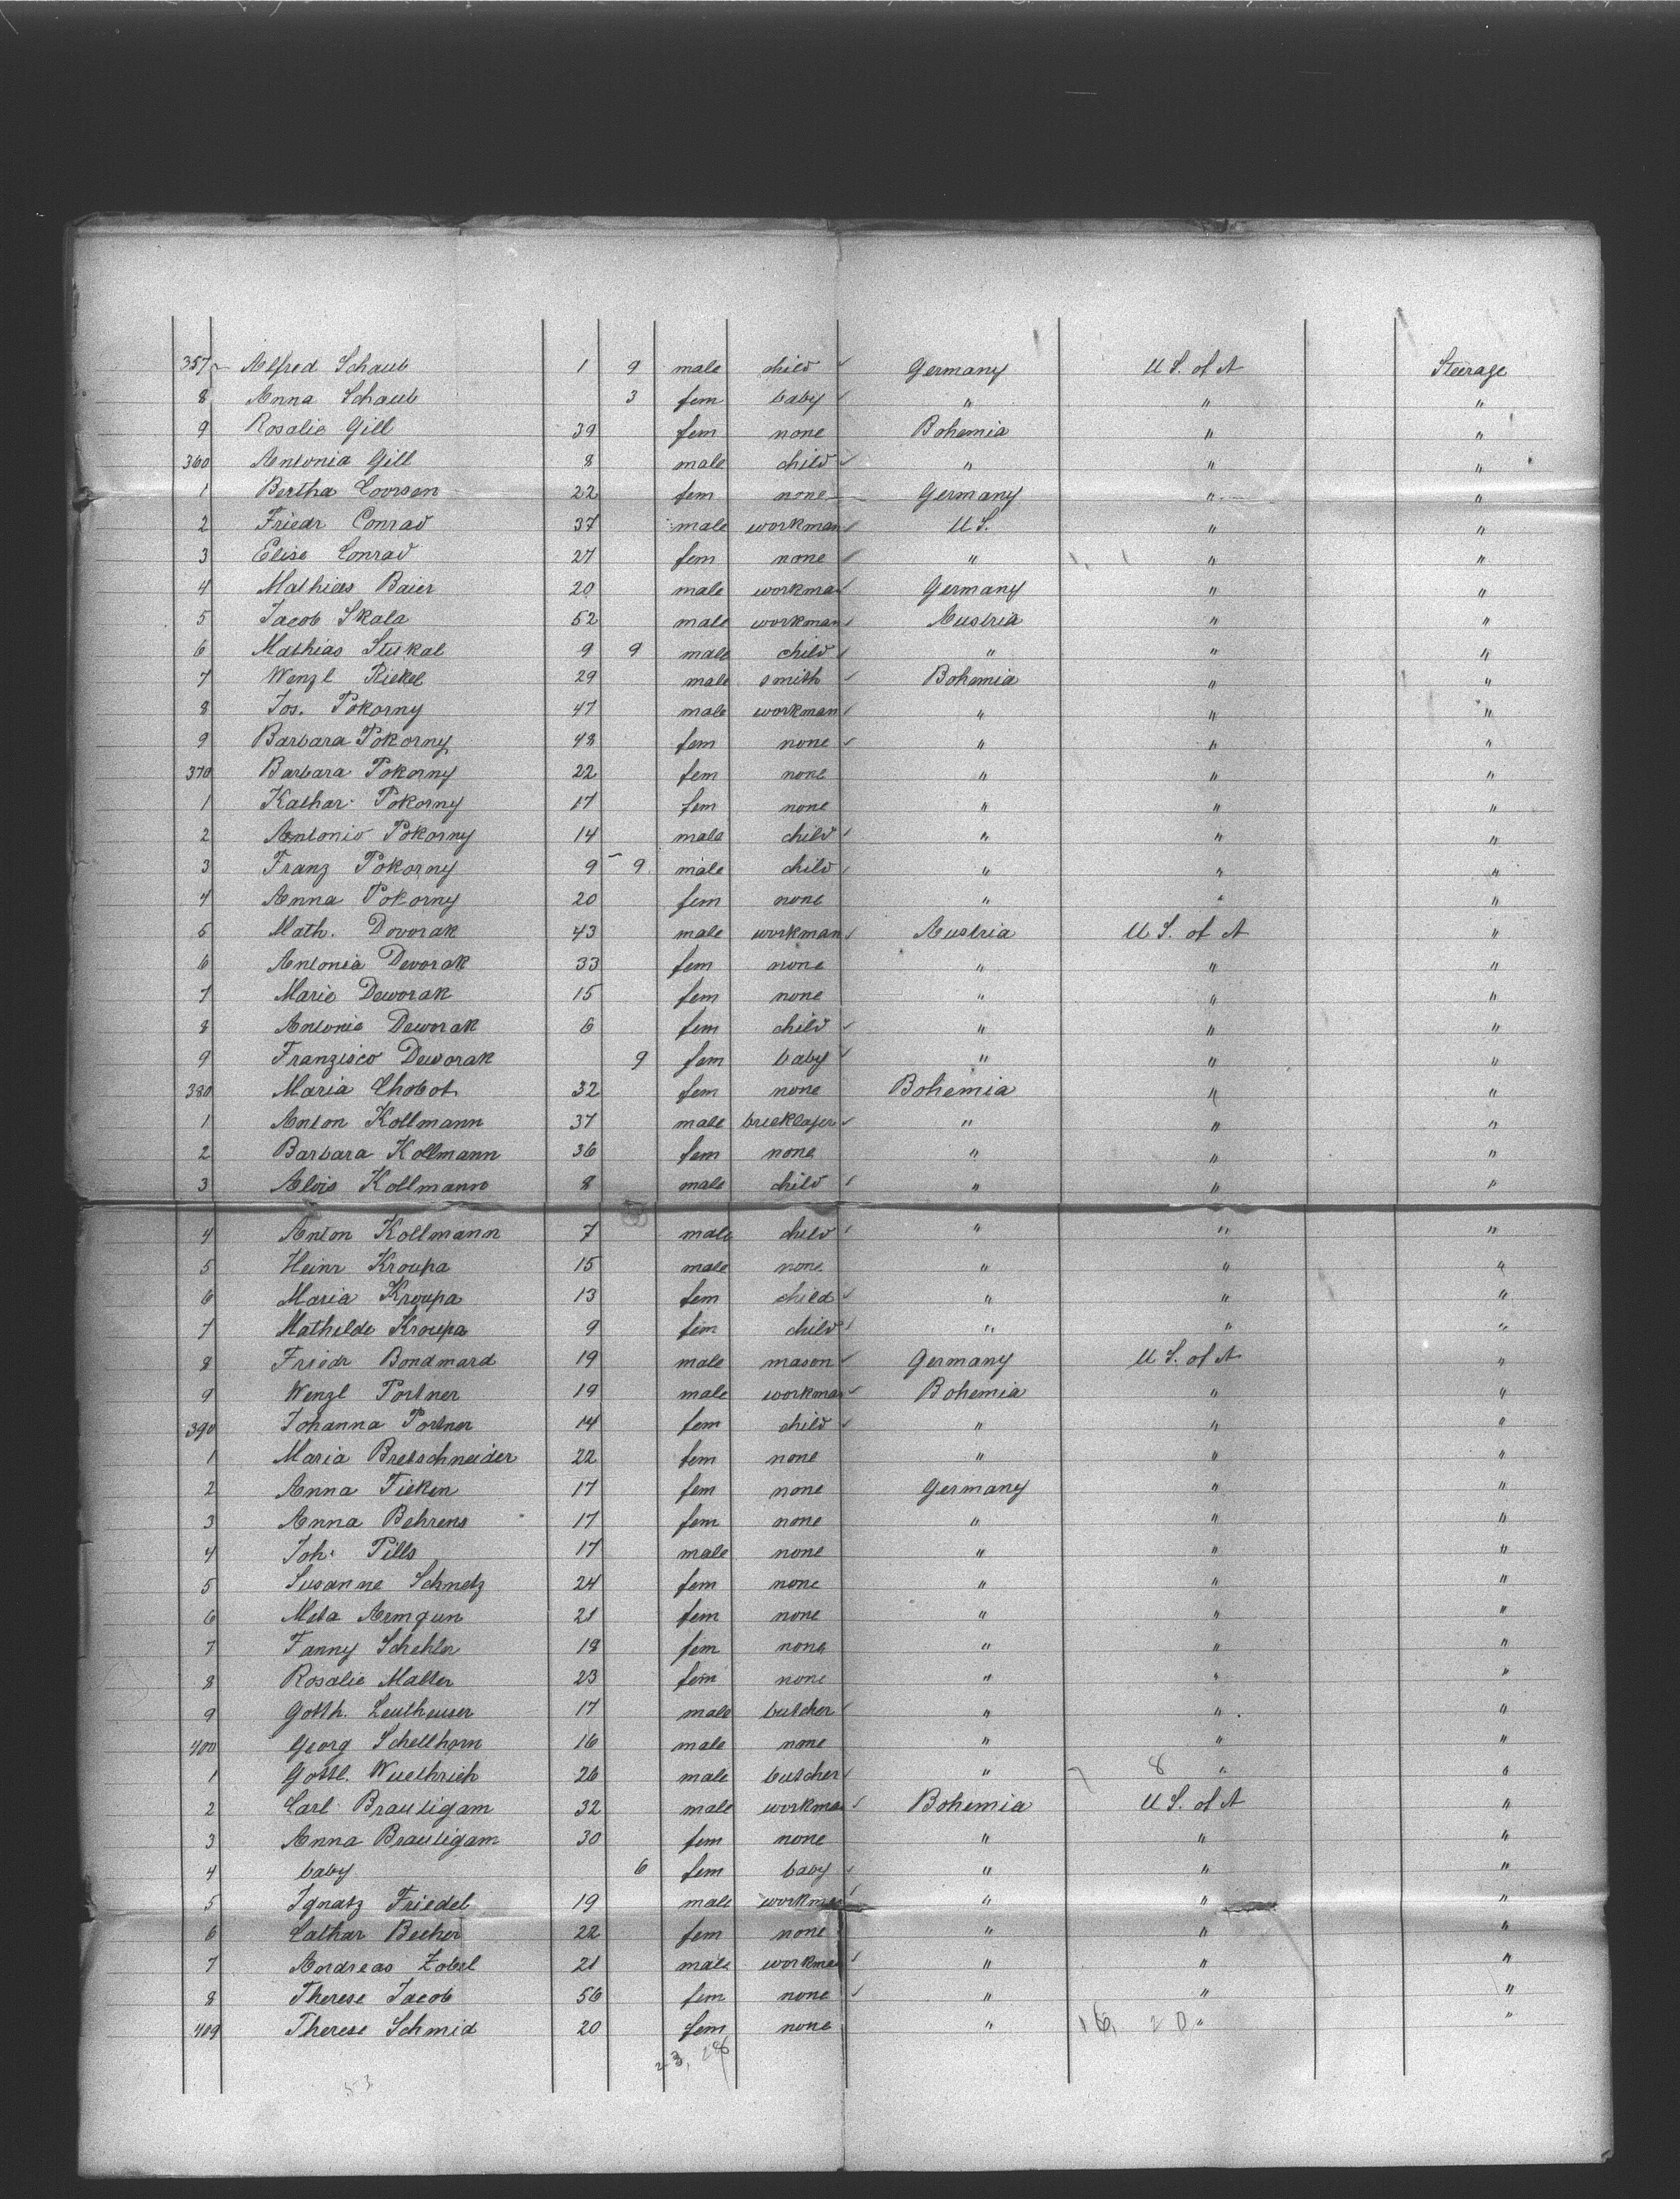 357 Alfred Schaub 1 9 male child Germany U S. of A Steerage
8 Anna Schaub 3 fem baby " " "
9 Rosalie Gill 39 fem none Bohemia " "
360 Antonia Gill 8 male child " " "
1 Bertha Coorsen 22 fem none Germany " "
2 Friedr Conrad 37 male workman U S. " "
3 Elise Conrad 27 fem none " " "
4 Mathias Baier 20 male workman Germany " "
5 Jacob Skala 52 male workman Austria " "
6 Mathias Stukal 9 9 male child " " "
7 Wenzl Rickel 29 male smith Bohemia " "
8 Jos. Pokorny 47 male workman " " "
9 Barbara Pokorny 48 fem none " " "
370 Barbara Pokorny 22 fem none " " "
1 Kathar. Pokorny 17 fem none " " "
2 Antonio Pokorny 14 male child " " "
3 Franz Pokorny 9 9 male child " " "
4 Anna Pokorny 20 fem none " " "
5 Math. Dovorak 43 male workman Austria U S. of A "
6 Antonia Devorak 33 fem none " " "
7 Marie Deworak 15 fem none " " "
8 Antonie Deworak 6 fem child " " "
9 Franzisco Deworak 9 fem baby " " "
380 Maria Chobot 32 fem none Bohemia " "
1 Anton Kollmann 37 male bricklajer " " "
2 Barbara Kollmann 36 fem none " " "
3 Alois Kollmann 8 male child " " "
4 Anton Kollmann 7 male child " " "
5 Heinr Kroupa 15 male none " " "
6 Maria Kroupa 13 fem child " " "
7 Mathilde Kroupa 9 fem child " " "
8 Friedr Bondmard 19 male mason Germany U S. of A "
9 Wenzl Portner 19 male workman Bohemia " "
390 Johanna Portner 14 fem child " " "
1 Maria Bretschneider 22 fem none " " "
2 Anna Ficken 17 fem none Germany " "
3 Anna Behrens 17 fem none " " "
4 Joh. Pills 17 male none " " "
5 Susanne Schmetz 24 fem none " " "
6 Meta Armgun 21 fem none " " "
7 Fanny Schehler 18 fem none " " "
8 Rosalie Malter 23 fem none " " "
9 Gotth. Leutheuser 17 male butcher " " "
400 Georg Schellhorn 16 male none " " "
1 Gottl. Wuethrich 26 male butcher " 8 " "
2 Carl Brautigam 32 male workman Bohemia U S. of A "
3 Anna Brautigam 30 fem none " " "
4 baby 6 fem baby " " "
5 Ignatz Friedel 19 male workman " " "
6 Cathar Becher 22 fem none " " "
7 Andreas Zobel 21 male workman " " "
8 Therese Jacob 56 fem none " " "
409 Therese Schmid 20 fem none " 16, 20 " "
23, 26
53